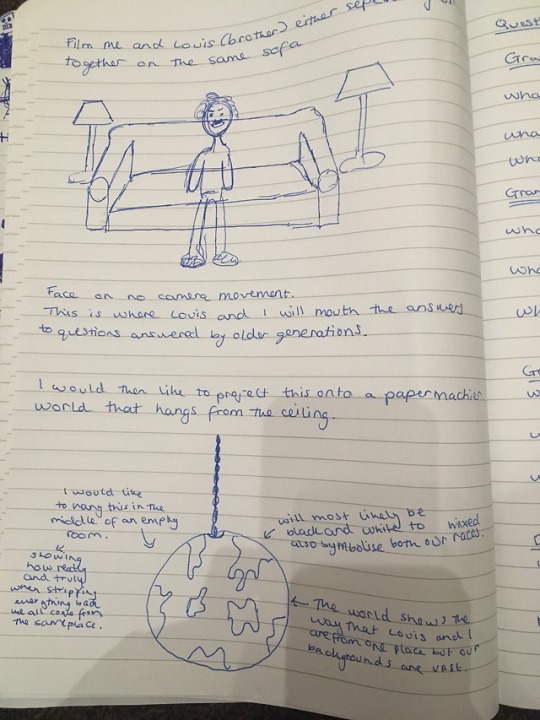 Film me and Louis (brother) either
together on the same sofa
Face on no camera movement.
This is where Louis and I will mouth the answers
to questions answered by older generations.
I would then like to project this onto a papermachier
world that hangs from the ceiling.
I would like
to hang this in the
middle of an empty
room.
showing
how really
and truly
when stripping
everything back
we all come from
the same place.
will most likely be
black and white to
also symbolise both our mixed races.
The world shows the
way that Louis and I
are from one place but our
backgrounds are vast.
Quest
Gra
wha
wha
wh
Gran
wha
wh